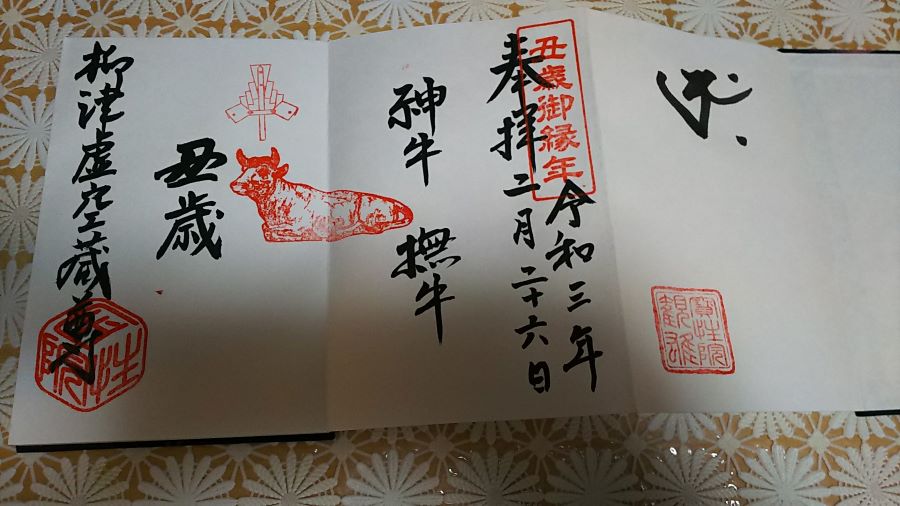 丑歳御縁年
奉拝
令和三年
二月二十六日
神牛 撫牛
丑歳
柳津虚空蔵尊
寳性院